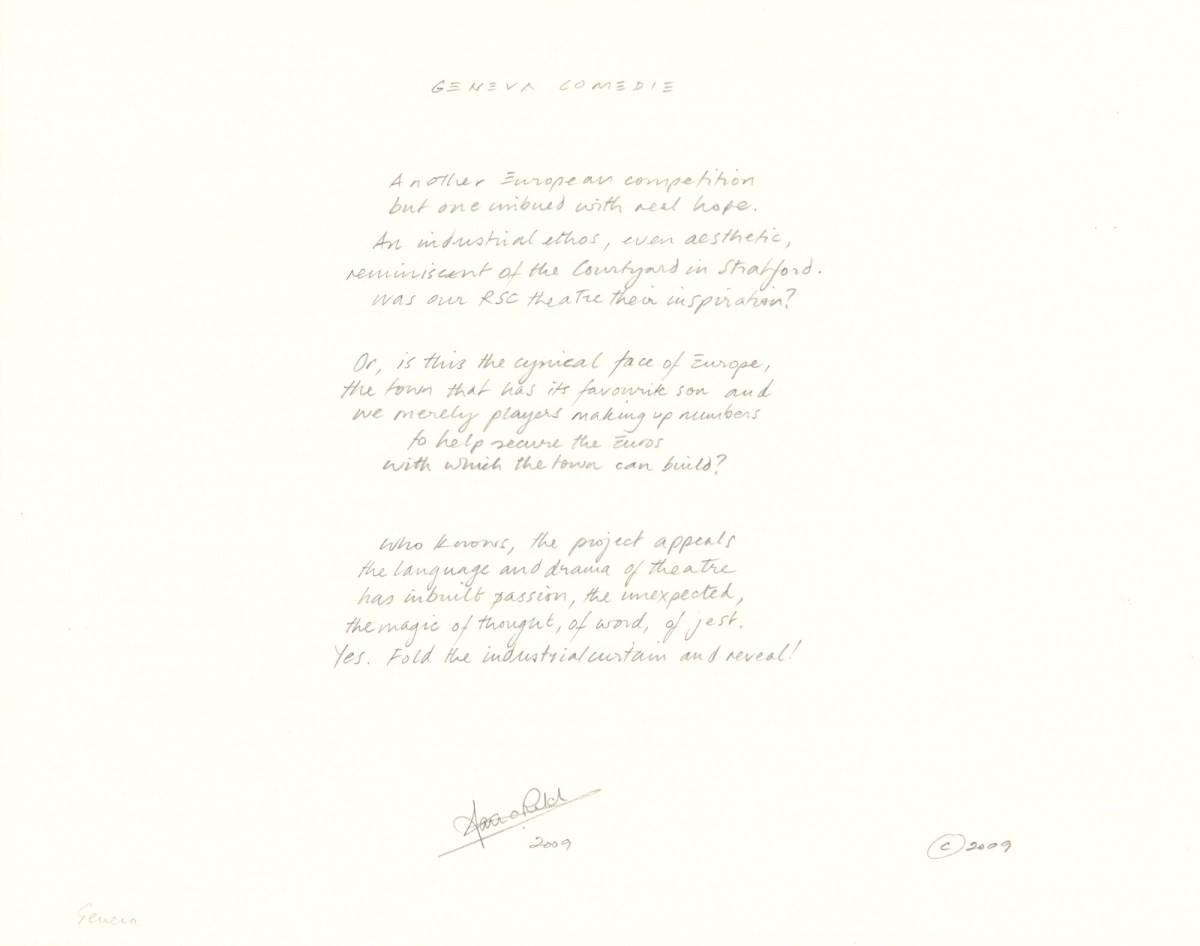 GENEVA COMEDIE
Another European competition
but one imbued with real hope.
An industrial ethos, even aesthetic,
reminiscent of the Courtyard in Stratford.
Was our RSC theatre their inspiration?
Or, is this the cynical face of Europe,
the town that has its favourite son and
we merely players making up numbers
to help secure the Euros
with which the town can build?
Who knows, the project appeals
the language and drama of theatre
has inbuilt passion, the unexpected,
the magic of thought, of word, of jest.
Yes. Fold the industrial curtain and reveal!
2009
© 2009
Geneva